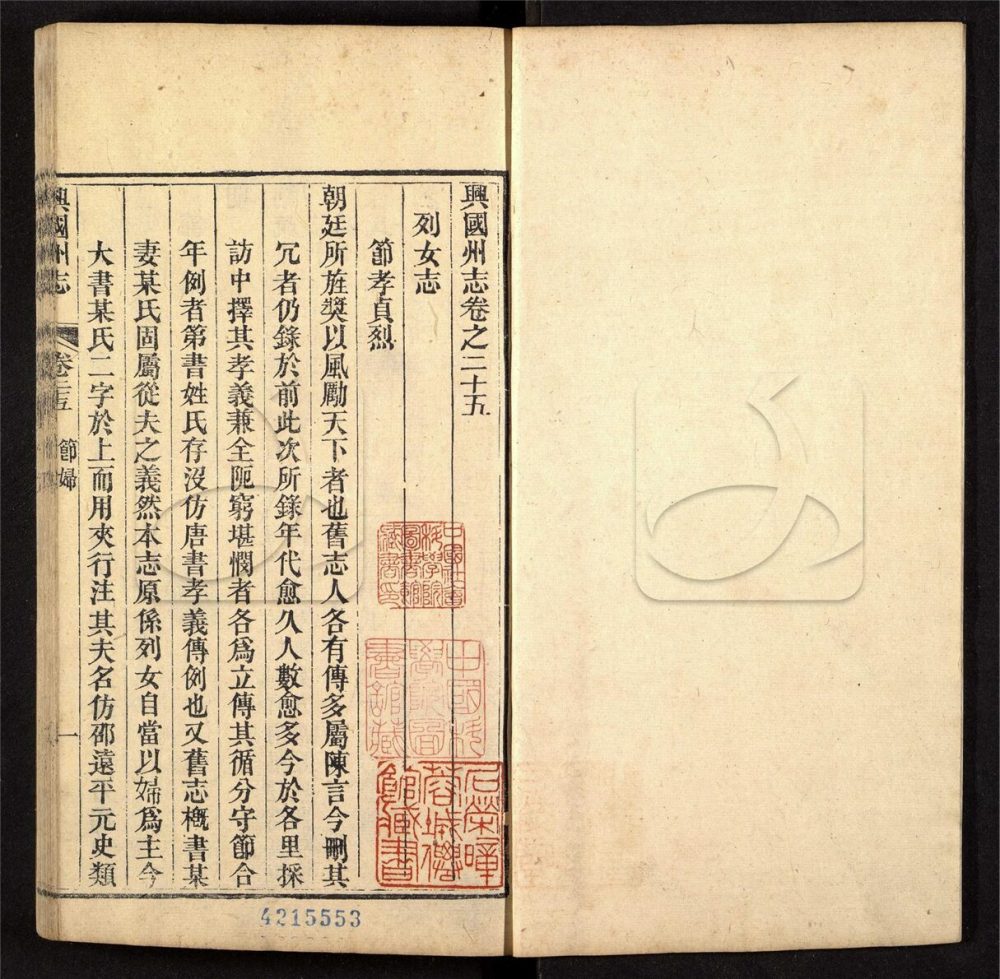 興國州志卷之二十五
列女志
節孝貞烈
朝廷所旌獎以風勵天下者也舊志人各有傳多屬陳言今刪其
冗者仍錄於前此次所錄年代愈久人數愈多今於各里採
訪中擇其孝義兼全阨窮堪憫者各為立傳其循分守節合
年例者第書姓氏存沒仿唐書孝義傳例也又舊志槪書某
妻某氏固屬從夫之義然本志原係列女自當以婦為主今
大書某氏二字於上而用夾行注其夫名仿邵遠平元史類
興國州志 卷二十五 節婦 一
中國社會科學院圖書館藏書印
中國科學院圖書館藏
石榮暲蓉城仙館藏書
4215553